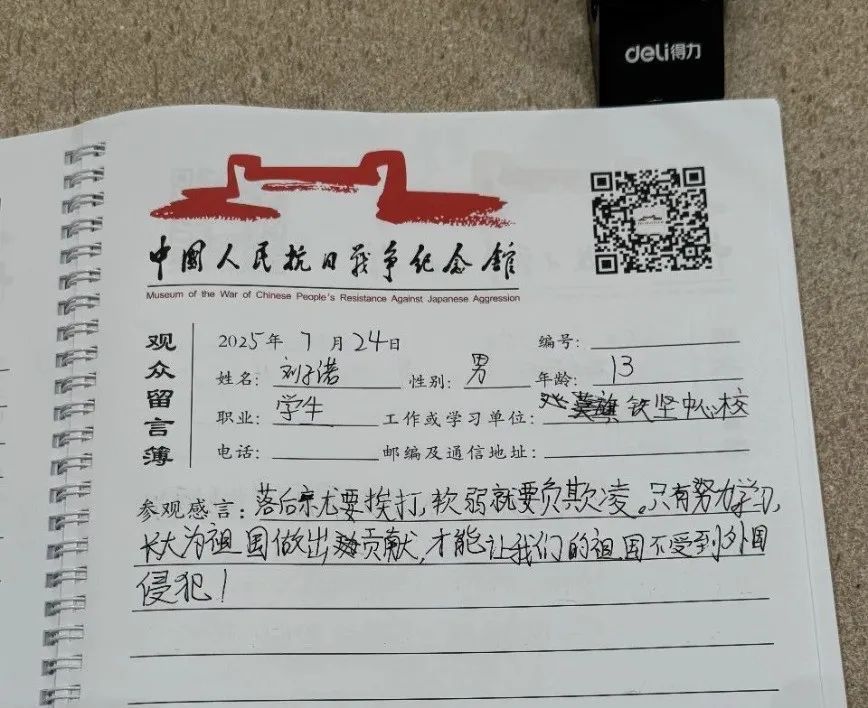 deli得力
中国人民抗日战争纪念馆
Museum of the War of Chinese People's Resistance Against Japanese Aggression
观众留言簿
2025年 7 月 24日 编号:
姓名: 刘子诺 性别: 男 年龄: 13
职业: 学生 工作或学习单位: 莫旗 铁坚中心校
电话: 邮编及通信地址:
参观感言: 落后就要挨打,软弱就要负欺凌。只有努力学习,
长大为祖国做出贡献,才能让我们的祖国不受到外国
侵犯!